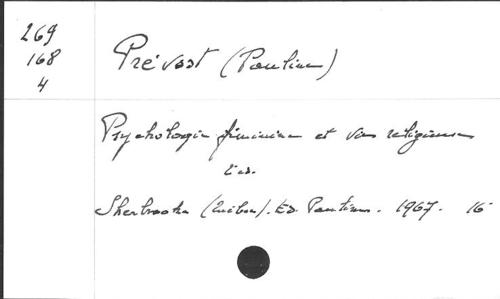 269
168
4
Prévost (Pauline)
Psychologie féminine et vie religieuse
Ed.
Sherbrooke (Québec). Ed. Paulines. 1967. 16